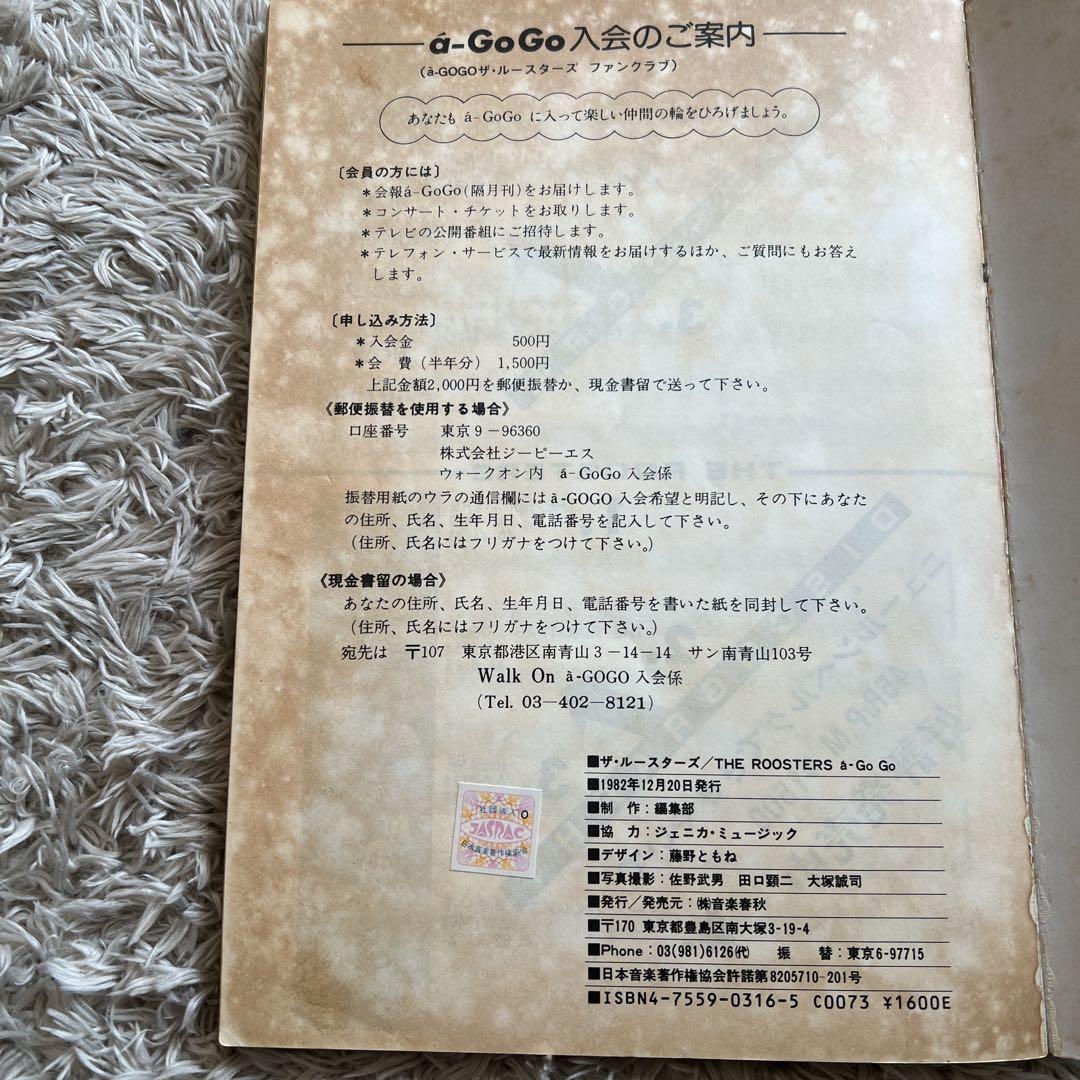 á-GoGo 入会のご案内
(à-GOGOザ・ルースターズ ファンクラブ)
あなたも á-GoGo に入って楽しい仲間の輪をひろげましょう。
〔会員の方には〕
*会報á-GoGo(隔月刊)をお届けします。
*コンサート・チケットをお取りします。
*テレビの公開番組にご招待します。
*テレフォン・サービスで最新情報をお届けするほか、ご質問にもお答え
します。
〔申し込み方法〕
*入会金 500円
*会 費(半年分) 1,500円
上記金額2,000円を郵便振替か、現金書留で送って下さい。
《郵便振替を使用する場合》
口座番号 東京9-96360
株式会社ジーピーエス
ウォークオン内 á-GoGo 入会係
振替用紙のウラの通信欄にはà-GOGO 入会希望と明記し、その下にあなた
の住所、氏名、生年月日、電話番号を記入して下さい。
(住所、氏名にはフリガナをつけて下さい。)
《現金書留の場合》
あなたの住所、氏名、生年月日、電話番号を書いた紙を同封して下さい。
(住所、氏名にはフリガナをつけて下さい。)
宛先は 〒107 東京都港区南青山3-14-14 サン南青山103号
Walk On à-GOGO 入会係
(Tel. 03-402-8121)
■ザ・ルースターズ/THE ROOSTERS á-Go Go
■1982年12月20日発行
■制 作:編集部
■協 力:ジェニカ・ミュージック
■デザイン:藤野ともね
■写真撮影:佐野武男 田口顕二 大塚誠司
■発行/発売元:㈱音楽春秋
■〒170 東京都豊島区南大塚3-19-4
■Phone:03(981)6126㈹ 振 替:東京6-97715
■日本音楽著作権協会許諾第8205710-201号
■ISBN4-7559-0316-5 C0073 ¥1600E
社団法人 O
JASRAC
日本音楽著作権協会